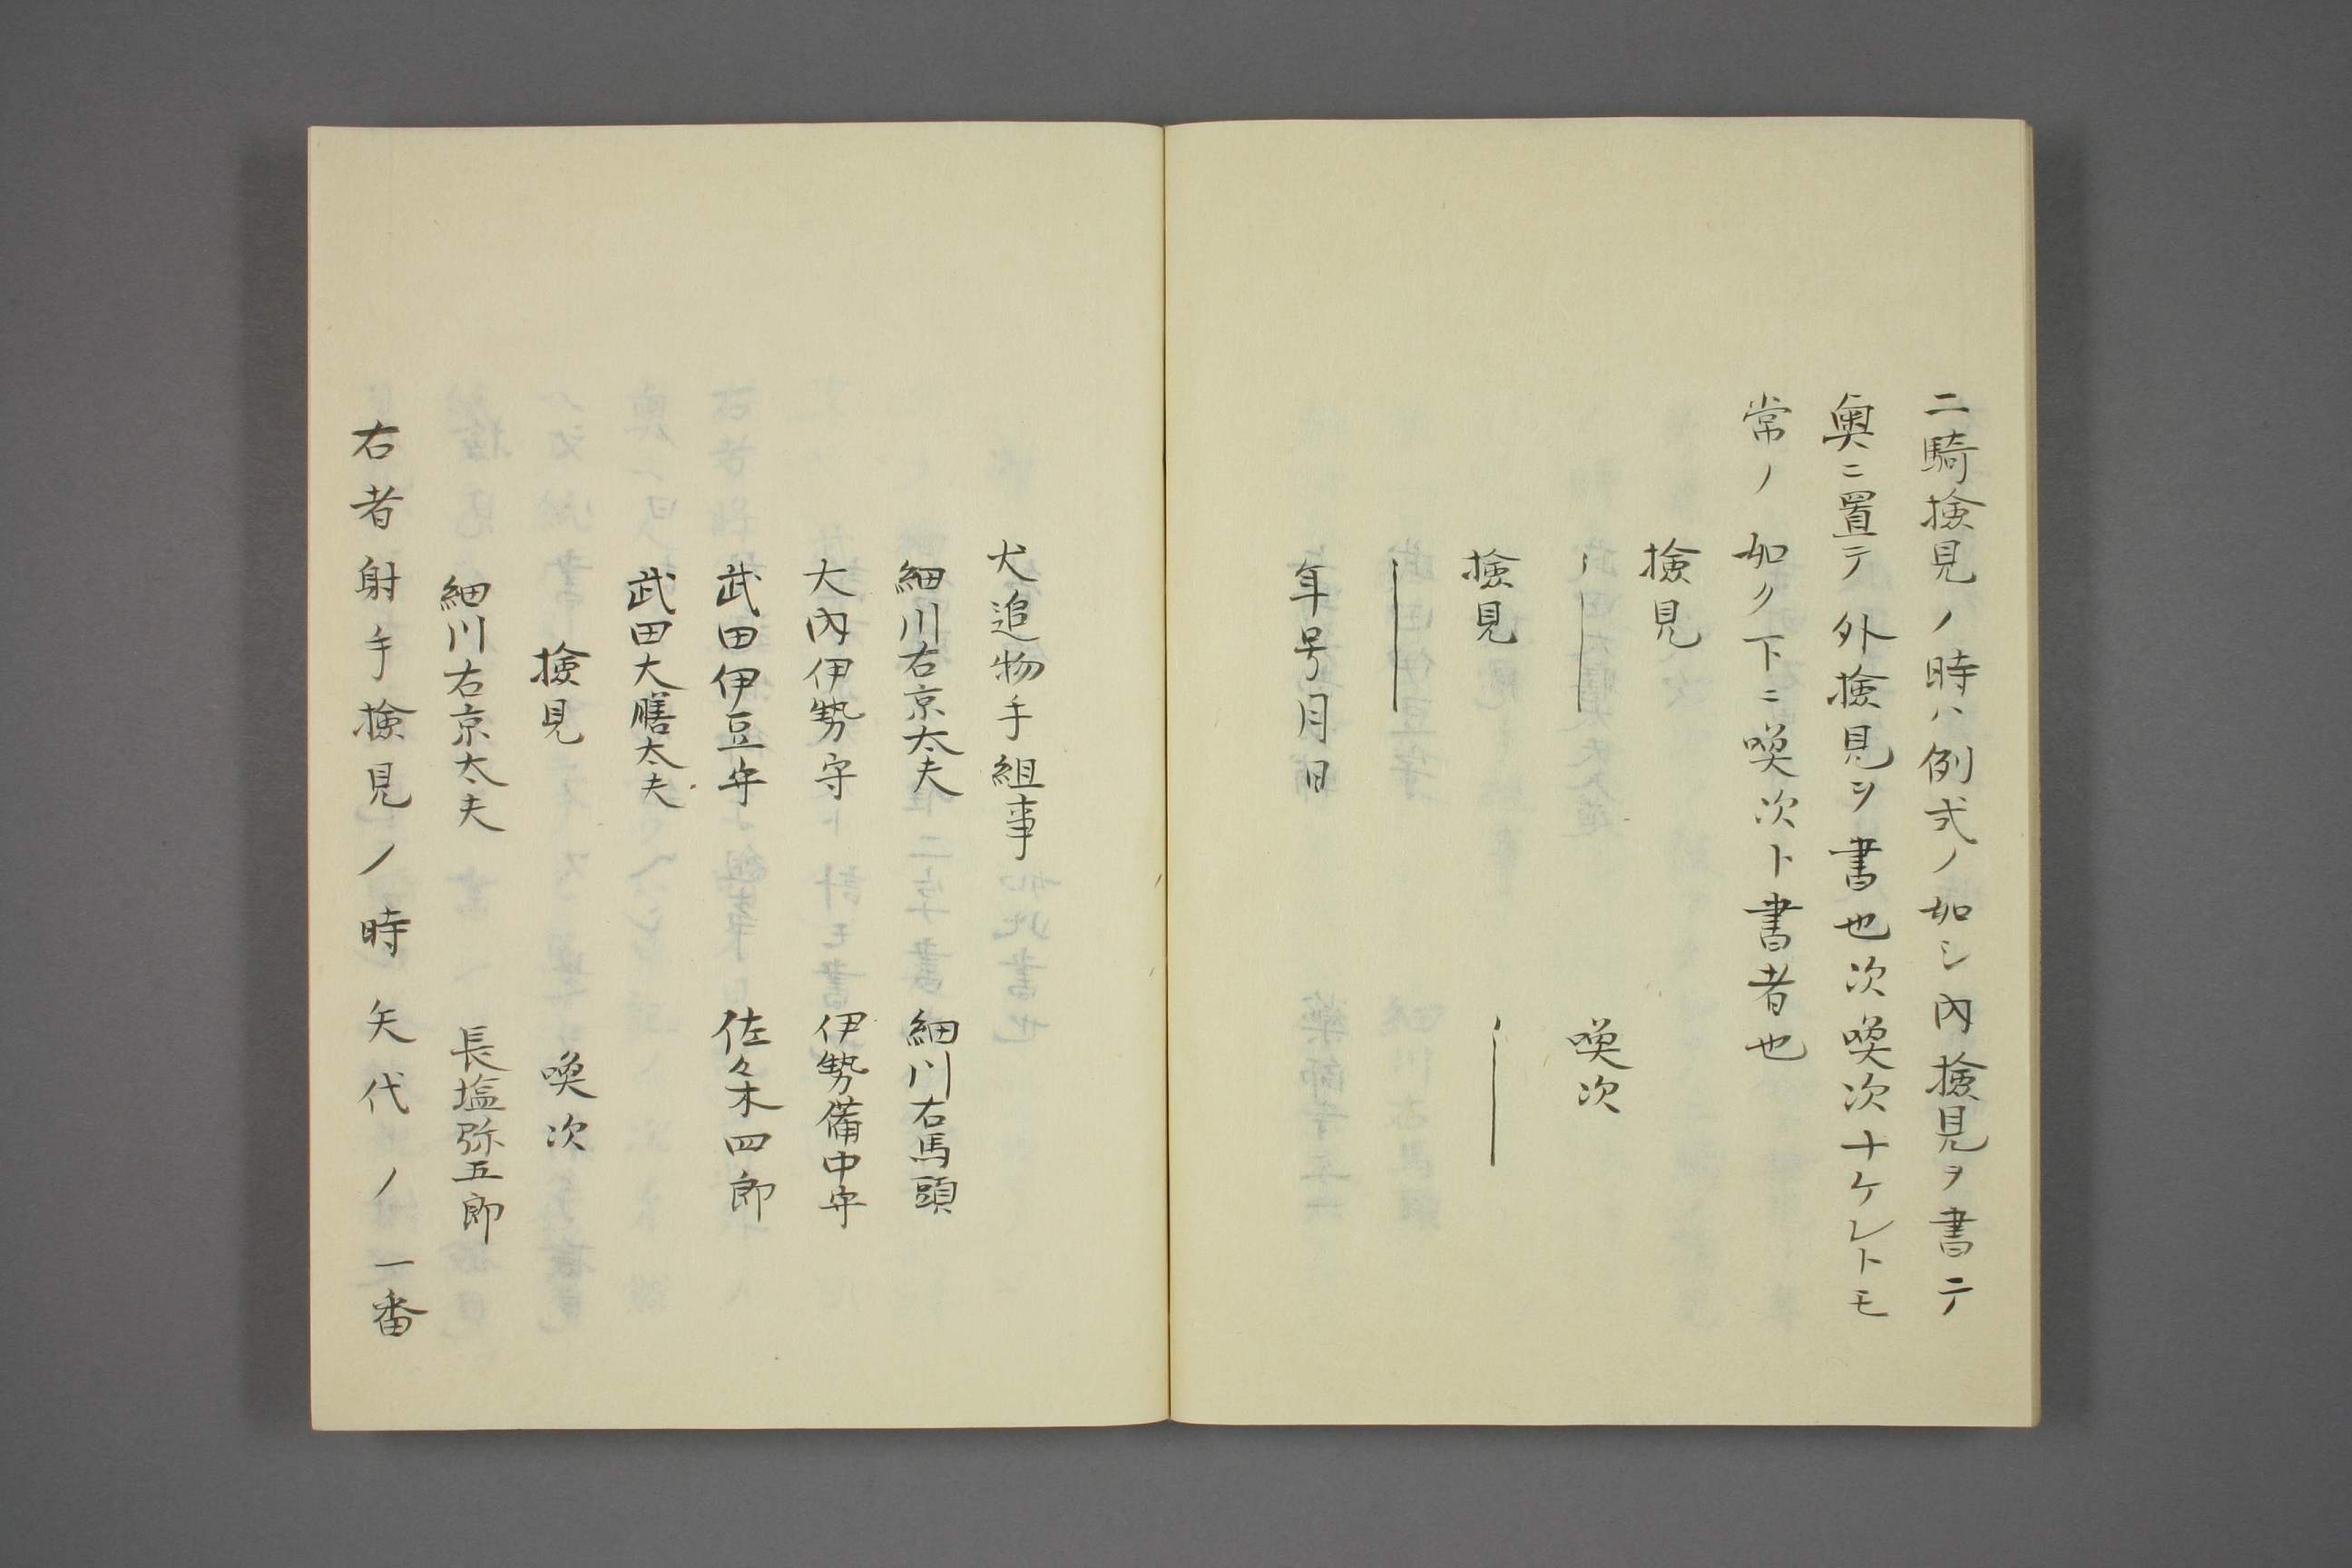 二騎検見ノ時ハ例式ノ如シ内検見ヲ書テ
奥ニ置テ外検見ヲ書也次喚次ナケレトモ
常ノ如ク下ニ喚次ト書者也
検見
喚次
検見
年号月日
犬追物手組事
細川右京太夫　細川右馬頭
大内伊勢守　伊勢備中守
武田伊豆守　佐々木四郎
武田大膳太夫
検見　喚次
細川右京太夫　長塩弥五郎
右者射手検見ノ時矢代ノ一番